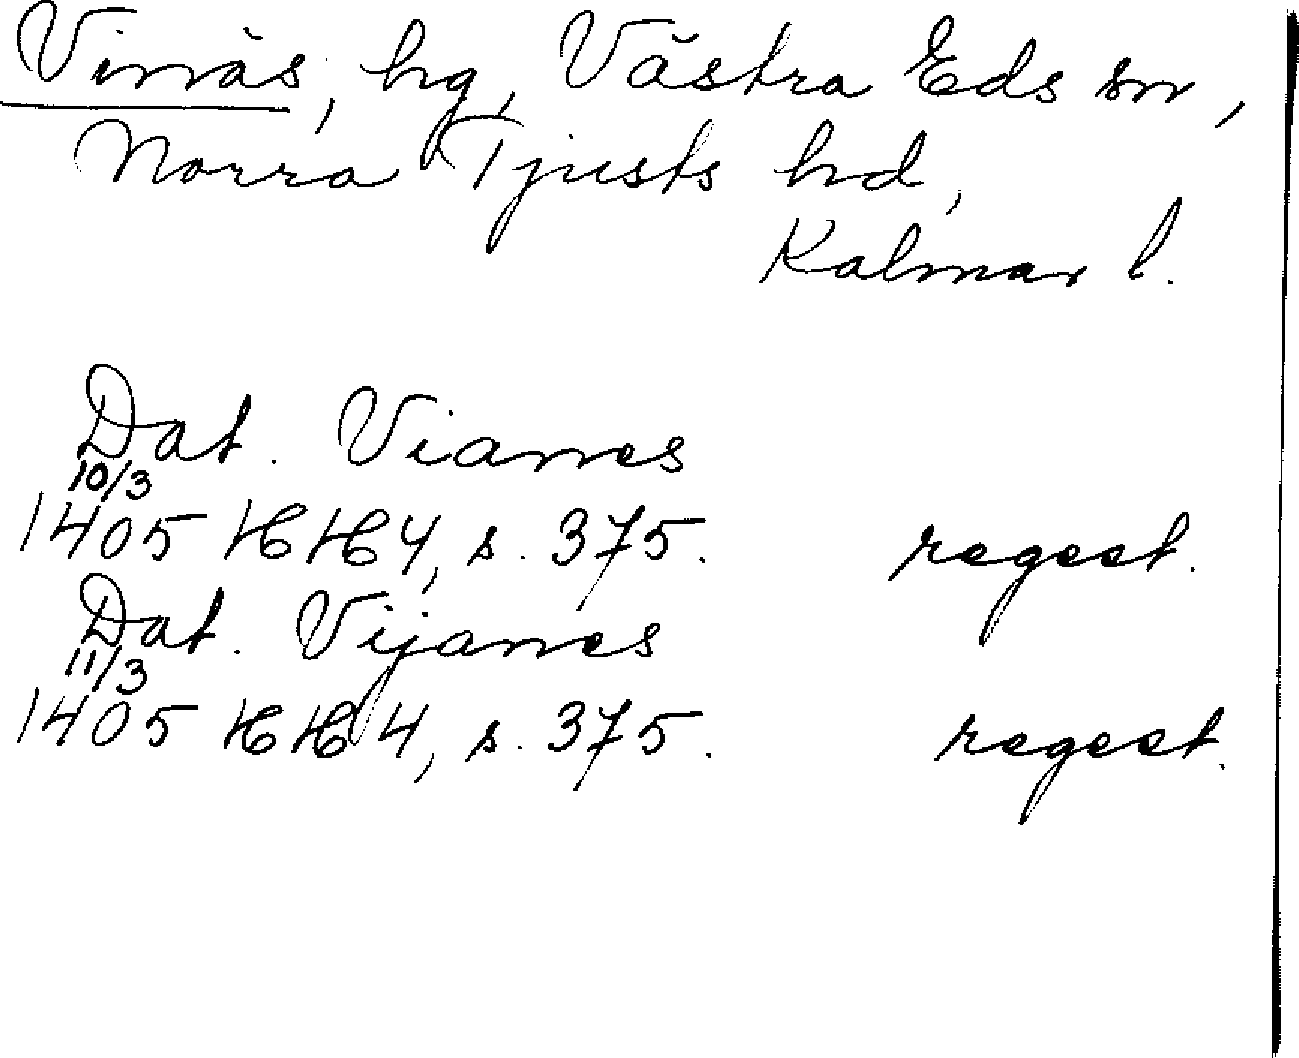 Vinäs, hg, Västra Eds sn,
Norra Tjusts hd,
Kalmar l.
Dat. Vianes
10/3
1405 HH 4, s. 375. regest.
Dat. Vijanes
11/3
1405 HH 4, s. 375. regest.